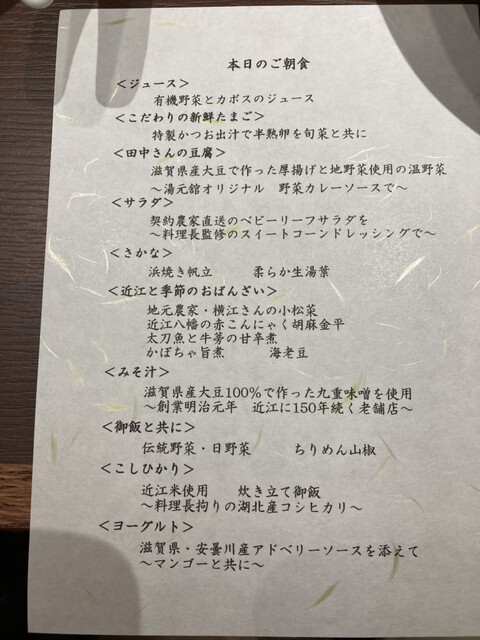 本日のご朝食
＜ジュース＞
有機野菜とカボスのジュース
＜こだわりの新鮮たまご＞
特製かつお出汁で半熟卵を旬菜と共に
＜田中さんの豆腐＞
滋賀県産大豆で作った厚揚げと地野菜使用の温野菜
～湯元館オリジナル　野菜カレーソースで～
＜サラダ＞
契約農家直送のベビーリーフサラダを
～料理長監修のスイートコーンドレッシングで～
＜さかな＞
浜焼き帆立　　柔らか生湯葉
＜近江と季節のおばんざい＞
地元農家・横江さんの小松菜
近江八幡の赤こんにゃく胡麻金平
太刀魚と牛蒡の甘辛煮
かぼちゃ旨煮　　　海老豆
＜みそ汁＞
滋賀県産大豆100％で作った九重味噌を使用
～創業明治元年　近江に150年続く老舗店～
＜御飯と共に＞
伝統野菜・日野菜　　　ちりめん山椒
＜こしひかり＞
近江米使用　　炊き立て御飯
～料理長拘りの湖北産コシヒカリ～
＜ヨーグルト＞
滋賀県・安曇川産アドベリーソースを添えて
～マンゴーと共に～